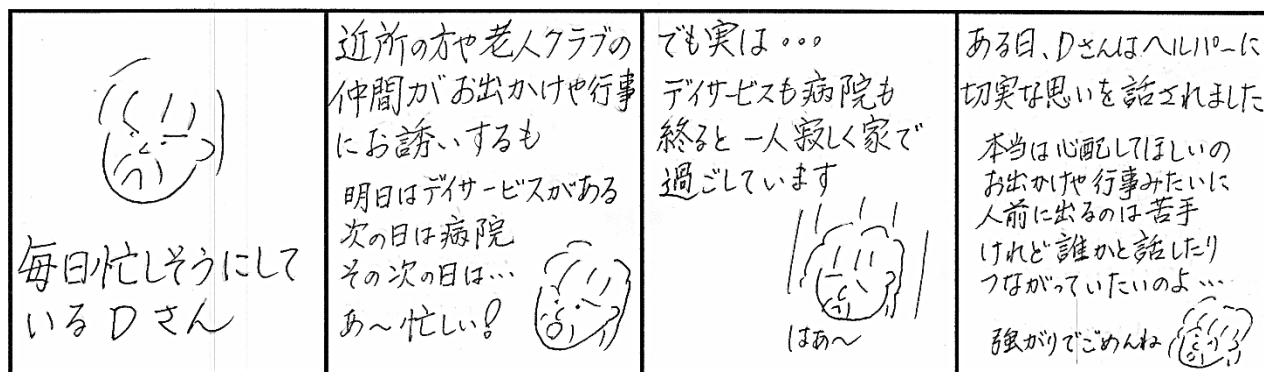 毎日忙しそうにして
いるDさん
近所の方や老人クラブの
仲間がお出かけや行事
にお誘いするも
明日はデイサービスがある
次の日は病院
その次の日は…
あ〜忙しい!
でも実は…
デイサービスも病院も
終ると一人寂しく家で
過ごしています
はあ〜
ある日、Dさんはヘルパーに
切実な思いを話されました
本当は心配してほしいの
お出かけや行事みたいに
人前に出るのは苦手
けれど誰かと話したり
つながっていたいのよ…
強がりでごめんね